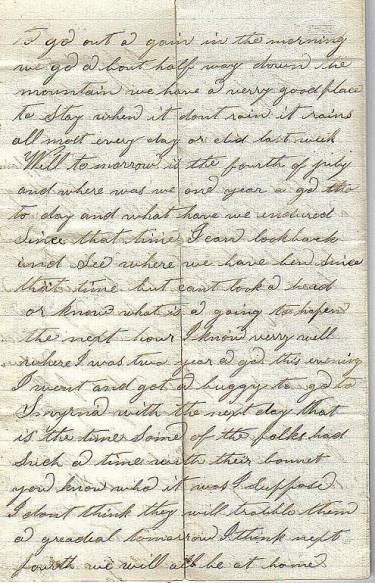 I go out a gain in the morning
we go a bout half way down the
mountain we have a verry good place
to stay when it dont rain it rains
all most every day or did last week
Well to morrow is the fourth of july
and where was we one year a go
to day and what have we endured
since that time I can look back
and see where we have ben since
that time but cant look a head
or know what is a going to hapen
the next hour I know verry well
where I was two year a go this evening
I went and got a buggy to go to
Smyrna with the next day that
is the time some of the folks had
such a time with their bonnet
you know who it was I suppose
I dont think they will trouble them
a greadeal tomorrow I think next
fourth we will all be at home